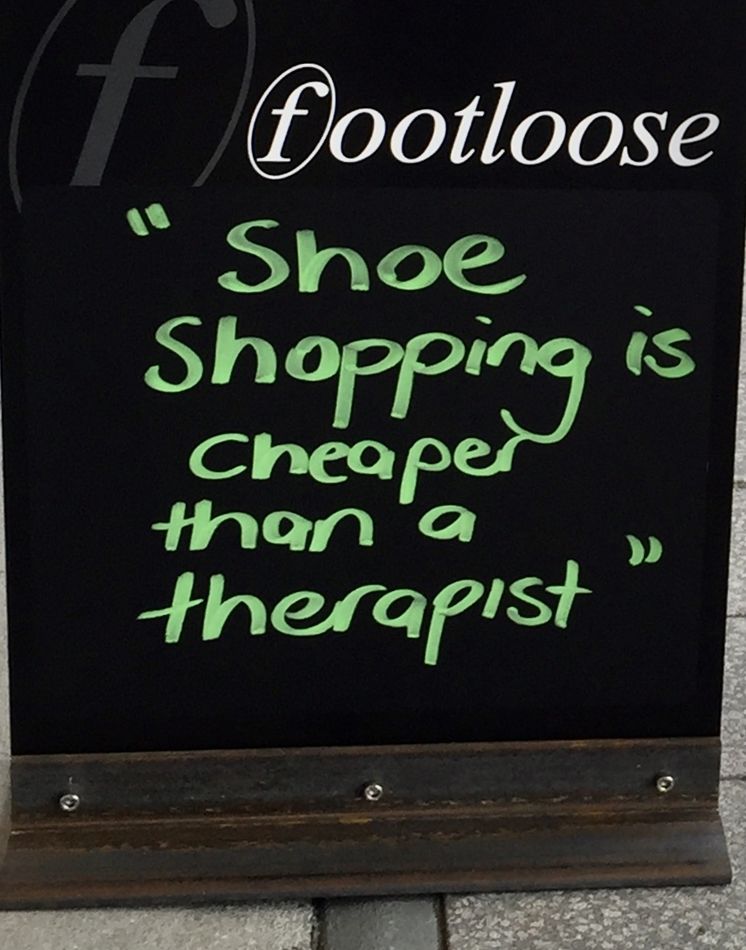 footloose
"Shoe
Shopping is
cheaper
than a
therapist"